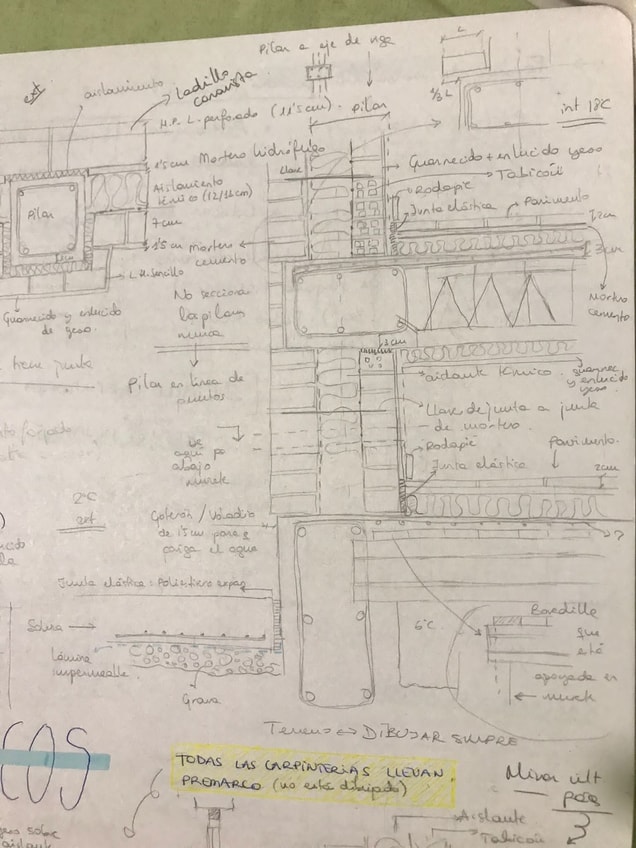 ext
aislamiento
Ladrillo
caravista
Pilar a eje de viga
L
1/3 L
int 18C
H.P. L. perforado (11'5cm).
Pilar
1'5cm Mortero hidrófugo
llave
Guarnecido + enlucido yeso
Tabicón
Aislamiento
térmico (12/14cm)
Rodapié
Junta elástica
Pavimento
2cm
Pilar
7cm
1'5cm Mortero
cemento
3cm
L.H. sencillo
Mortero
cemento
Guarnecido y enlucido
de yeso.
No secciona
la pilares
nunca
3cm
tiene junta
Pilar en línea de
puntos
aislante térmico.
guarnec
y enlucido
yeso.
Llave de junta a junta
de mortero.
forjado
de
aquí pa
abajo
Rodapié
Pavimento.
Junta elástica
2cm
2ºC
ext
Goterón / Voladizo
de 1'5cm para q
caiga el agua
?
Junta elástica: Poliestireno expan
Solera
Lámina
impermeable
Grava
6ºC
Bovedilla
que
está
apoyada en
Terreno DIBUJAR SIEMPRE
COS
TODAS LAS CARPINTERÍAS LLEVAN
PREMARCO (no está dibujado)
Mirar últ
pág
Aislante
Tabicón
sobre
aislante